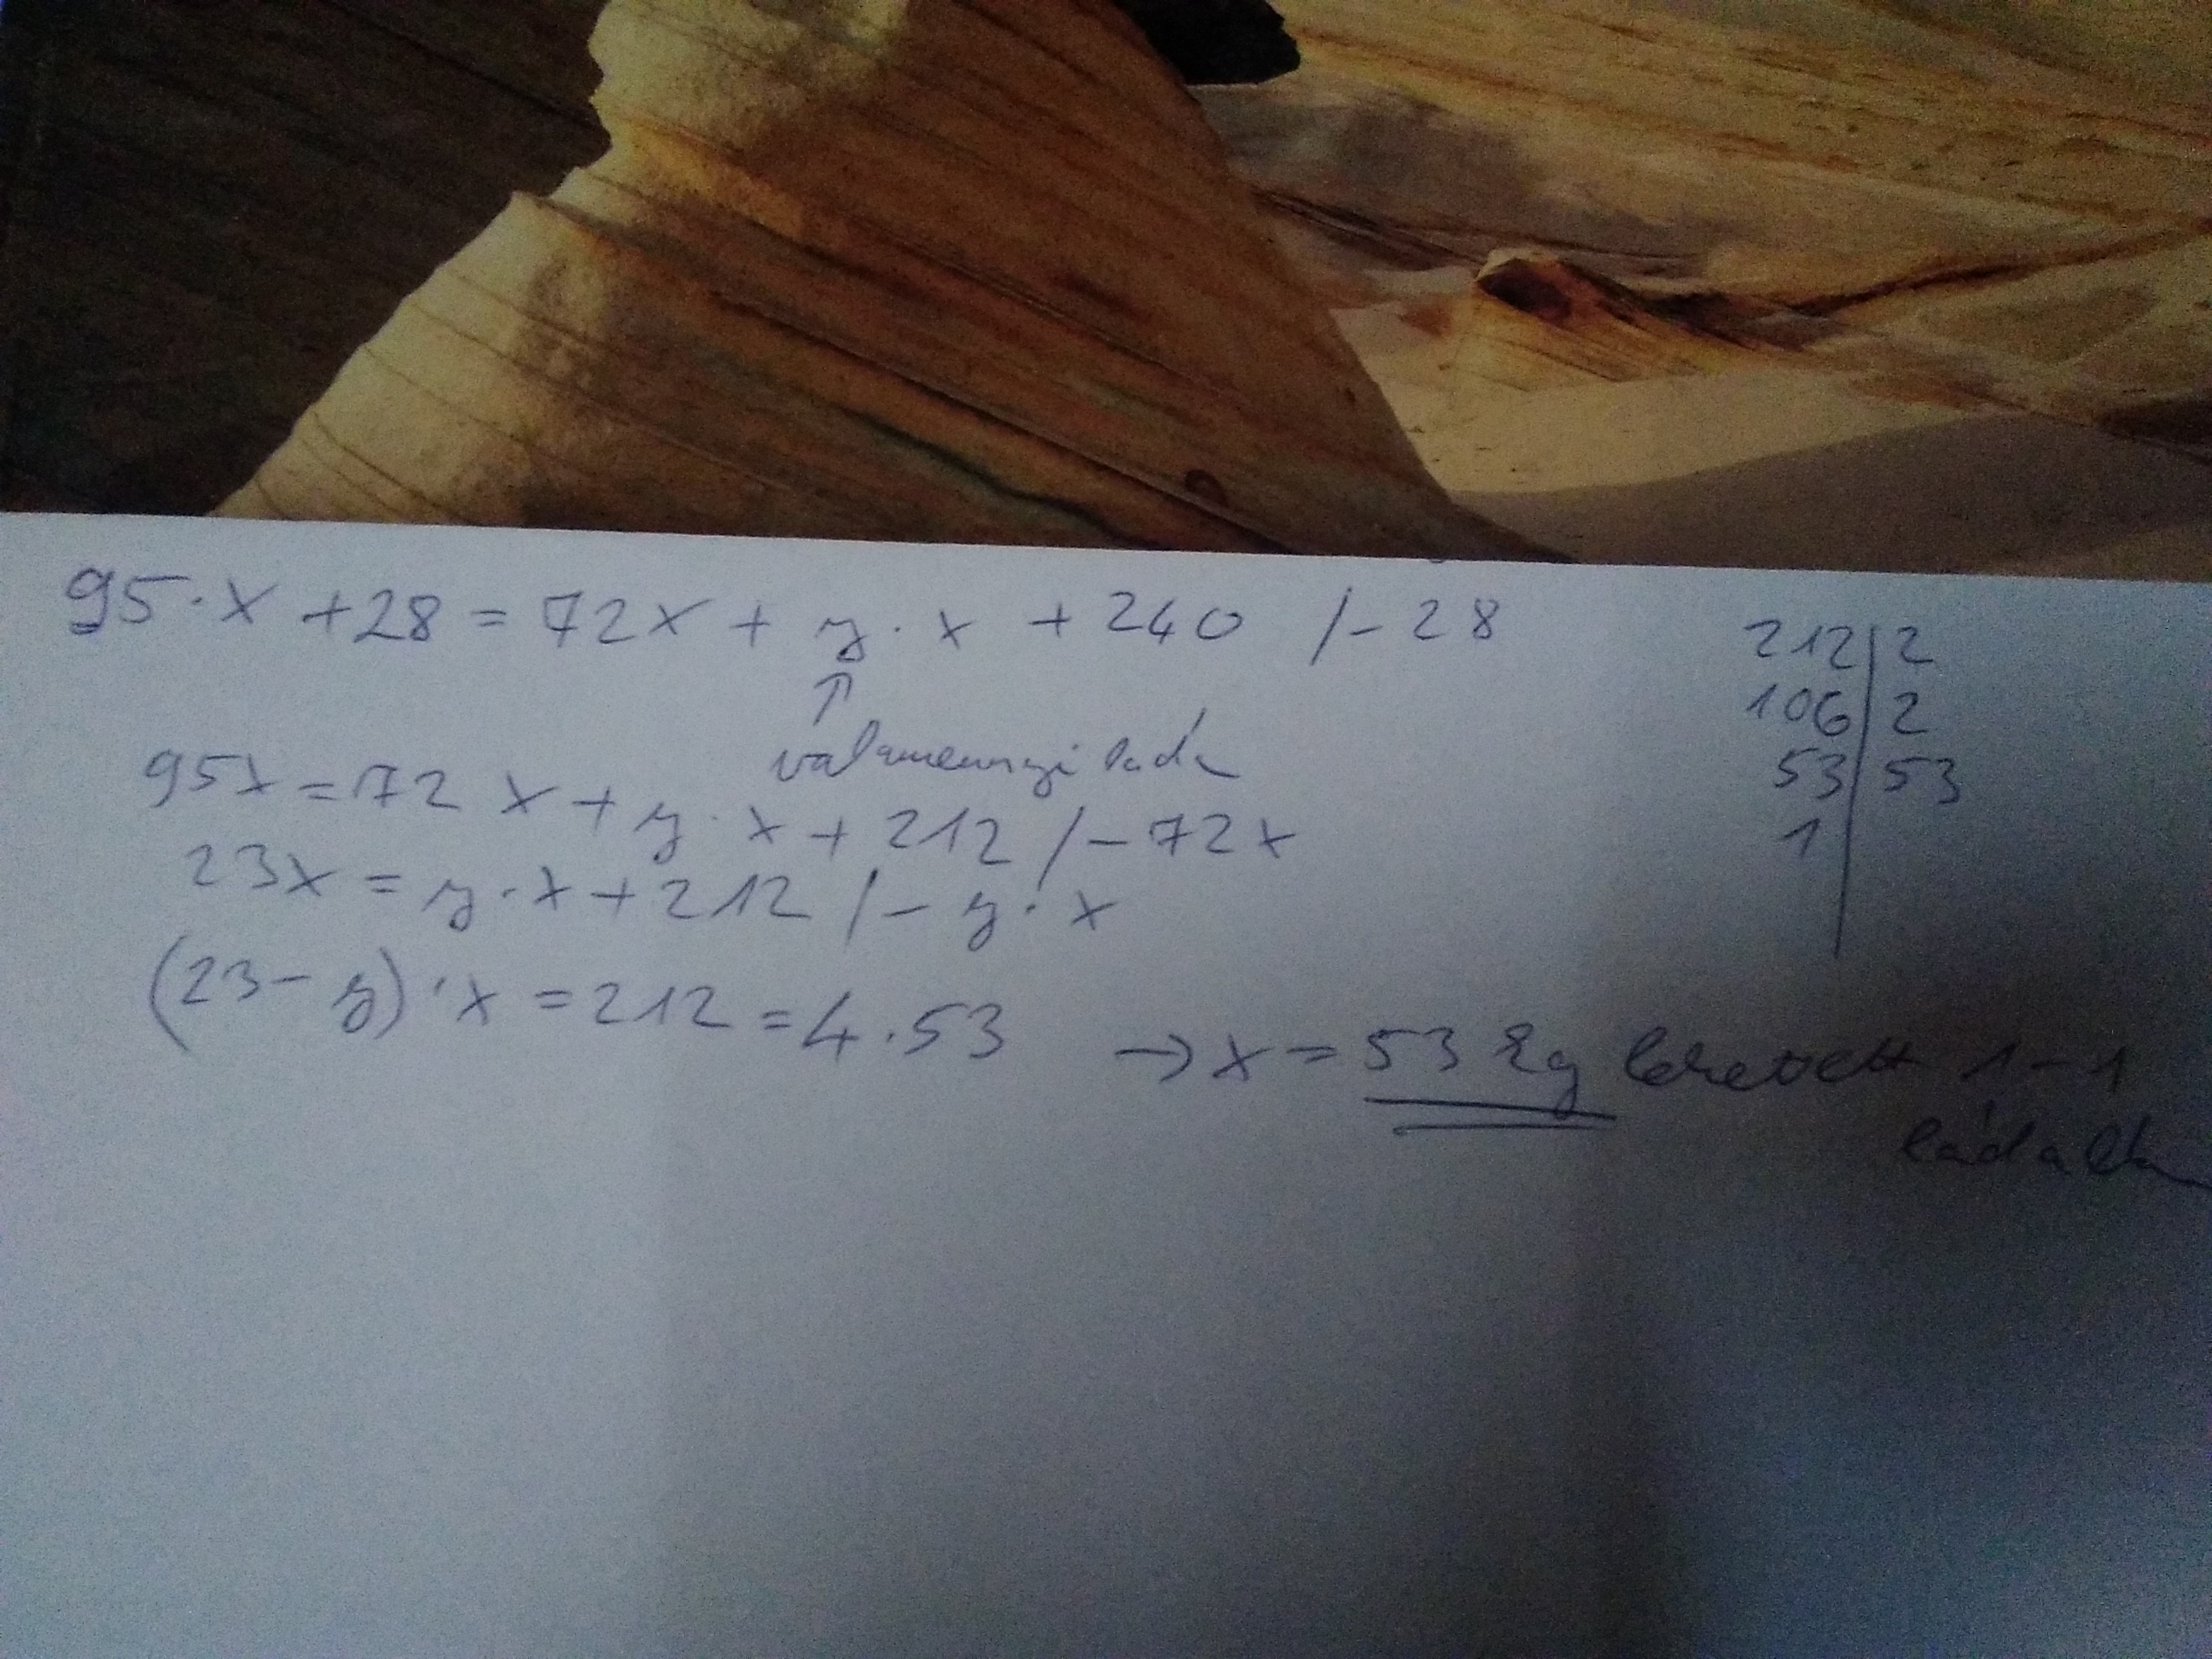 95·x + 28 = 72x + y·x + 240 /-28
↑
valamennyi láda
95x = 72x + y·x + 212 /-72x
23x = y·x + 212 /- y·x
(23-y)·x = 212 = 4·53 → x = 53 kg lehetett 1-1
ládában
212|2
106|2
53|53
1|